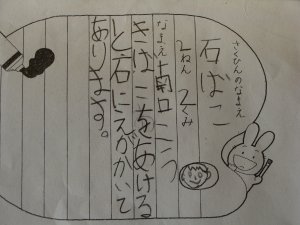 さくひんのなまえ
石ばこ
2ねん 2くみ
なまえ 南口こう
きはこをあける
と石にえがかいて
あります。